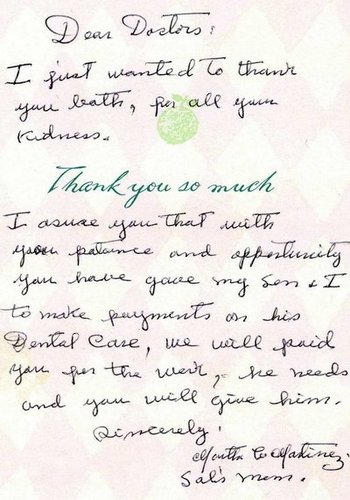 Dear Doctors:
I just wanted to thank
you both, for all your
kidness.
Thank you so much
I asure you that with
your patience and opportunity
you have gave my Son & I
to make payments on his
Dental Case, we will paid
you for the work, he needs
and you will give him.
Sincerely,
Martinez.
Sal's Mom.